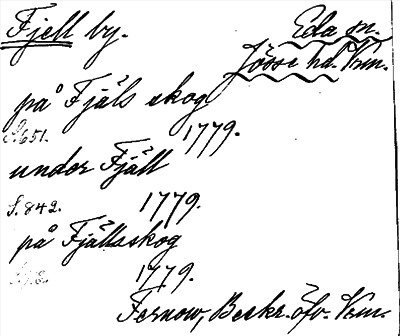 Fjell by. Eda sn.
Jösse hd. Vrm.
på Fjäls skog
S. 651. 1779.
under Fjäll
S. 842. 1779.
på Fjällsskog
1779.
Fernow, Beskr. öfv. Vrm.